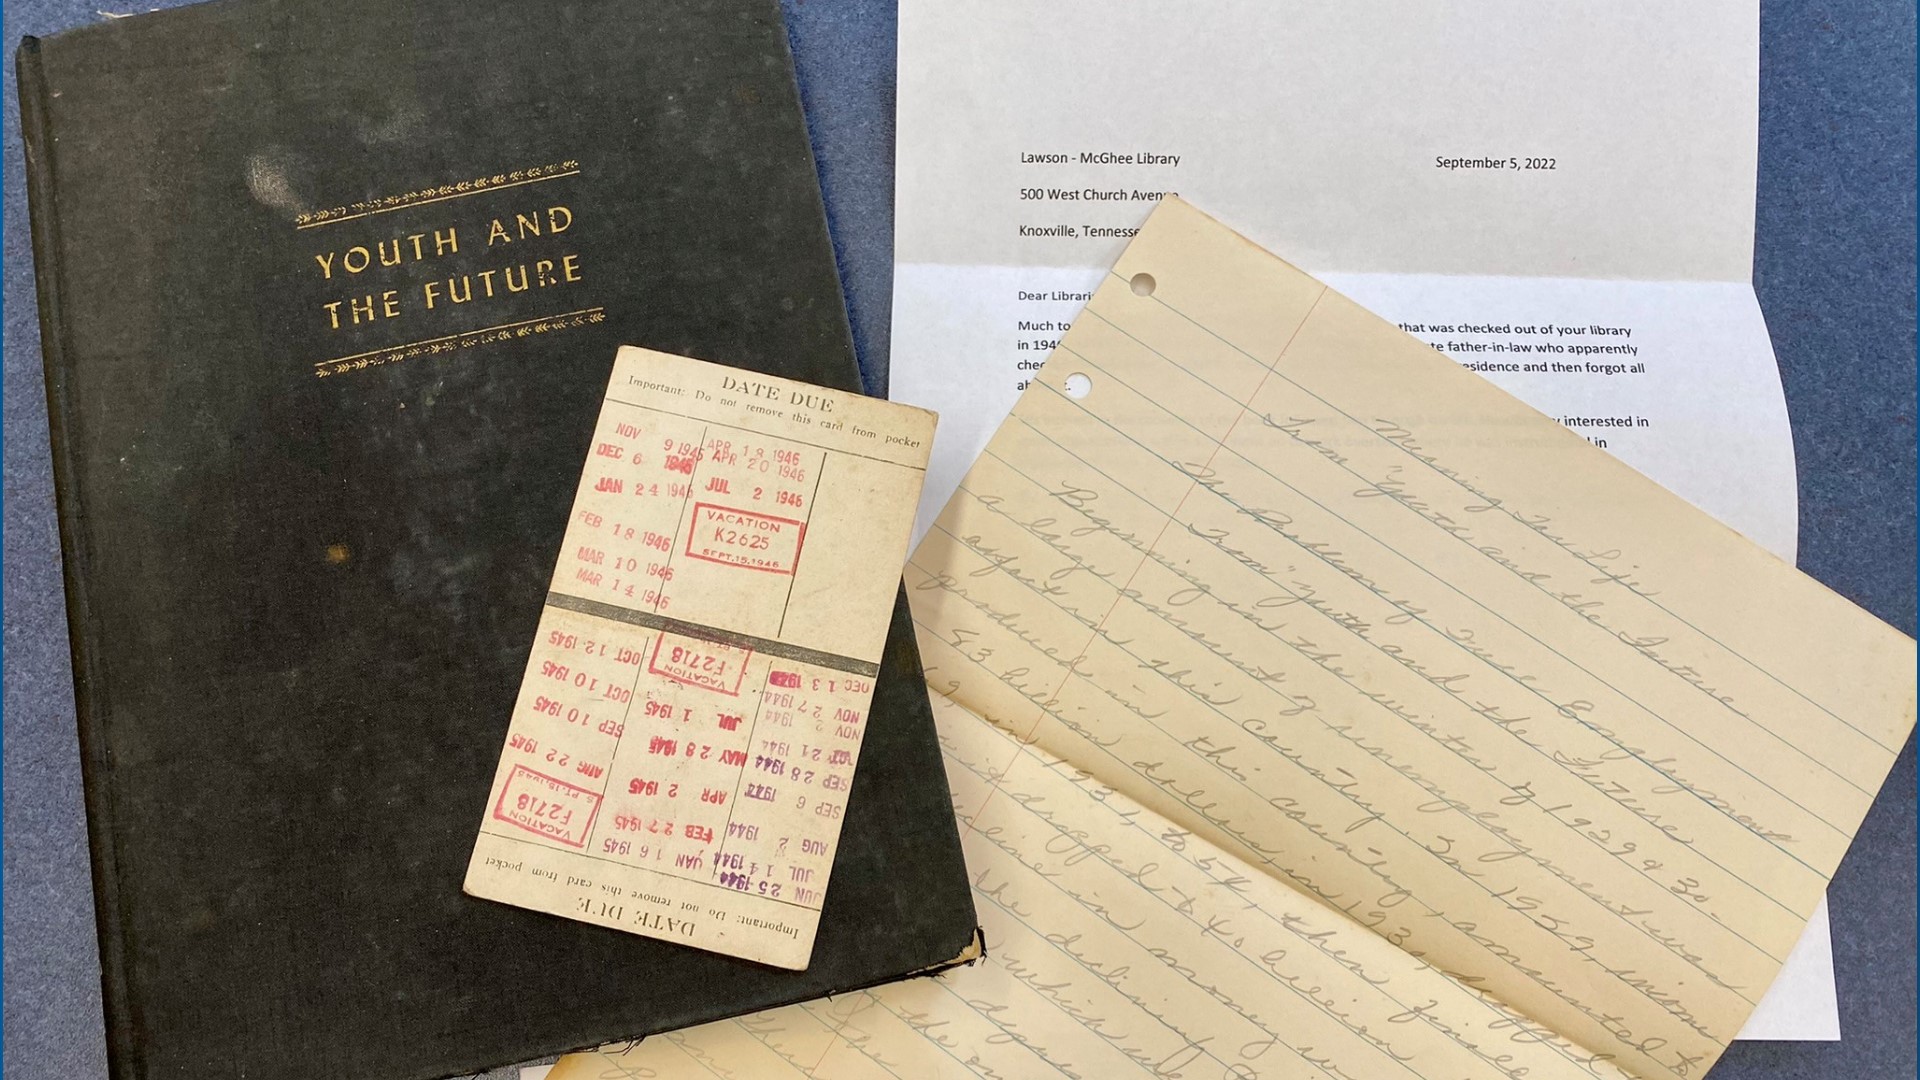 YOUTH AND
THE FUTURE
DATE DUE
Important: Do not remove this card from pocket
NOV 9 1945
DEC 6 1945
JAN 24 1946
FEB 18 1946
MAR 10 1946
MAR 14 1946
APR 18 1946
APR 20 1946
JUL 2 1946
VACATION
K2625
SEPT.15.1946
DATE DUE
Important: Do not remove this card from pocket
JUN 25 1944
JUL 14 1944
AUG 2 1944
SEP 6 1944
SEP 28 1944
21 1944
NOV 2 1944
NOV 27 1944
DEC 13 1944
JAN 16 1945
FEB 27 1945
APR 2 1945
MAY 28 1945
JUL 1 1945
VACATION
F2718
VACATION
F2718
SEPT.15.1945
AUG 22 1945
SEP 10 1945
OCT 10 1945
OCT 12 1945
Lawson - McGhee Library
September 5, 2022
500 West Church
Knoxville,
Dear
Much to that was checked out of your library
in father-in-law who apparently
and then forgot all
interested in
in
Meaning For Life
From "Youth and the Future
Full Employment
From "Youth and the Future
Beginning in the winter of 1929 & 30-
a large amount of unemployment was
in this country. In 1929,
produced in this country, amounted to
83 billion dollars, in 1930, dropped
in 1931, to 54, then
dropped to 40 billion
in money
the declining
which
the